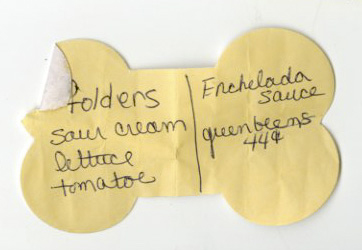 folders
sour cream
lettuce
tomatoe
Enchelada
sauce
greenbeens
44¢